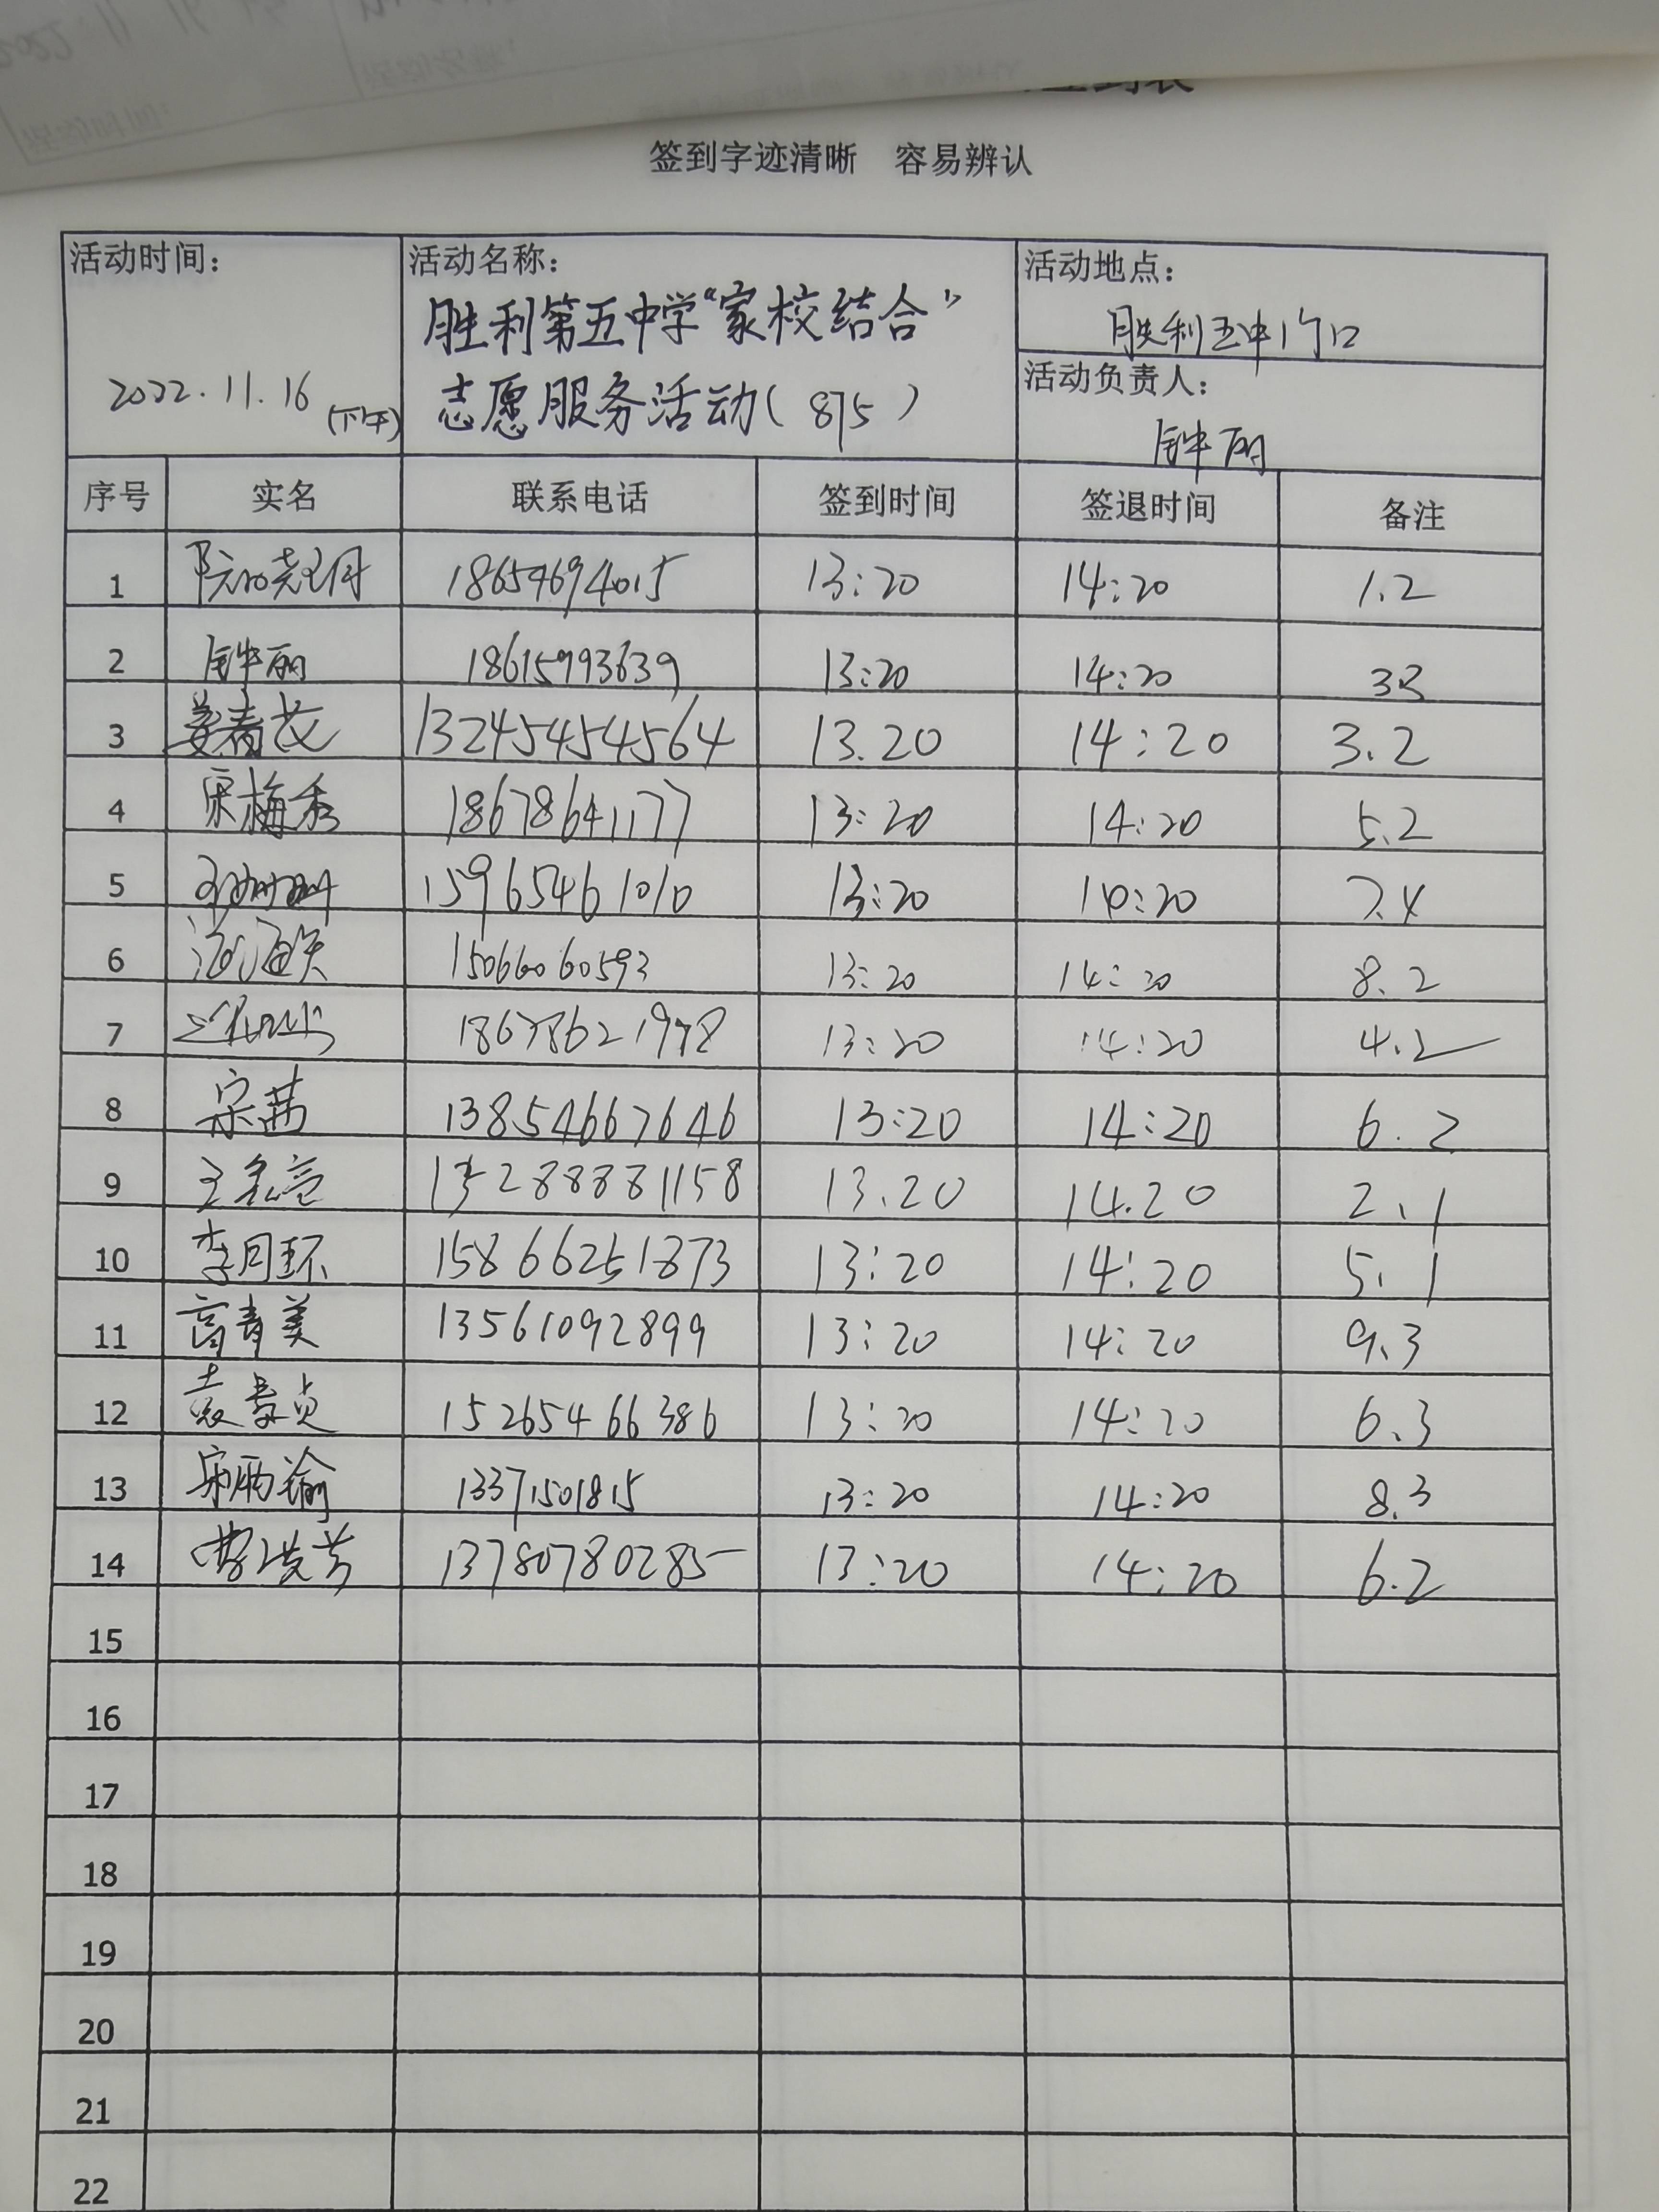 签到字迹清晰 容易辨认
活动时间： 活动名称： 活动地点：
胜利第五中学“家校结合” 胜利五中门口
2022.11.16 (下午) 志愿服务活动(875) 活动负责人：
钟丽
序号 实名 联系电话 签到时间 签退时间 备注
1 18654694015 13:20 14:20 1.2
2 钟丽 18615993639 13:20 14:20
3 姜青 13245454564 13.20 14:20 3.2
4 宋梅秀 18678641177 13:20 14:20 5.2
5 15965461010 13:20 14:20 7.4
6 15066060593 13:20 14:20 8.2
7 13:20 14:20 4.2
8 宗茜 13854667646 13:20 14:20 6.2
9 13.20 14.20 2.1
10 李月环 15866251873 13:20 14:20 5.1
11 高青美 13561092899 13:20 14:20 9.3
12 袁春贞 15265466386 13:20 14:20 6.3
13 宋雨瑜 13371501815 13:20 14:20 8.3
14 13780780285 13:20 14:20 6.2
15
16
17
18
19
20
21
22